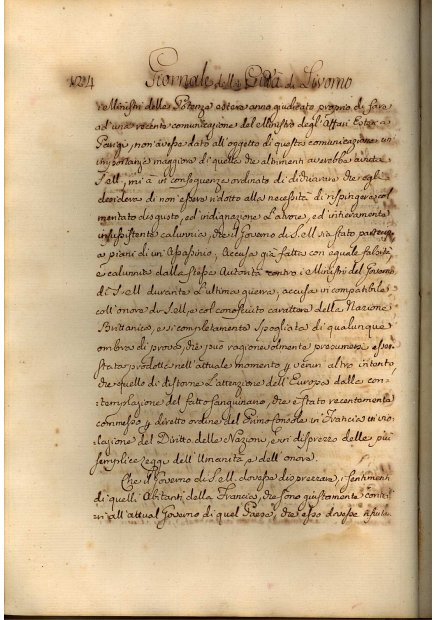 1224 Giornale della Città di Livorno
i Ministri delle Potenze estere anno giudicato proprio di fare
ad una recente comunicazione del Ministro degl'Affari Esteri a
Parigi, non avesse dato all'oggetto di questa comunicazione un
importanza maggiore di quella che altrimenti averebbe avuta
S. ell, mi à in conseguenza ordinato di dichiarare che egli
desiderava di non essere ridotto alla necessità di rispingere col
meritato disgusto, ed indignazione l'atroce, ed interamente
insussistente calunnia, che il Governo di S. ell sia stato partecipe
a piani di un'Assassinio, Accusa già fatta con eguale falsità,
e calunnia dalla stessa Autorità contro i Ministri del Governo
di S. ell durante l'ultima guerra, accusa incompatibile
coll'onore di S. ell, e col conosciuto carattere della Nazione
Brittanica, e sì completamente spogliata di qualunque
ombra di prova, che può ragionevolmente presumersi esser
stata prodotta nell'attuale momento p verun altro intento
che quello di distorre l'attenzione dell'Europa dalla con-
templazione del fatto sanguinario, che è stato recentemente
commesso p diretto ordine del Primo Console in Francia in vio-
lazione del Diritto delle Nazioni, e in disprezzo delle più
semplici Leggi dell'Umanità, e dell'onore.
Che il Governo di S. ell. dovesse disprezzare i sentimenti
di quelli Abitanti della Francia, che sono giustamente contra-
ri all'attual Governo di quel Paese, che esso dovesse